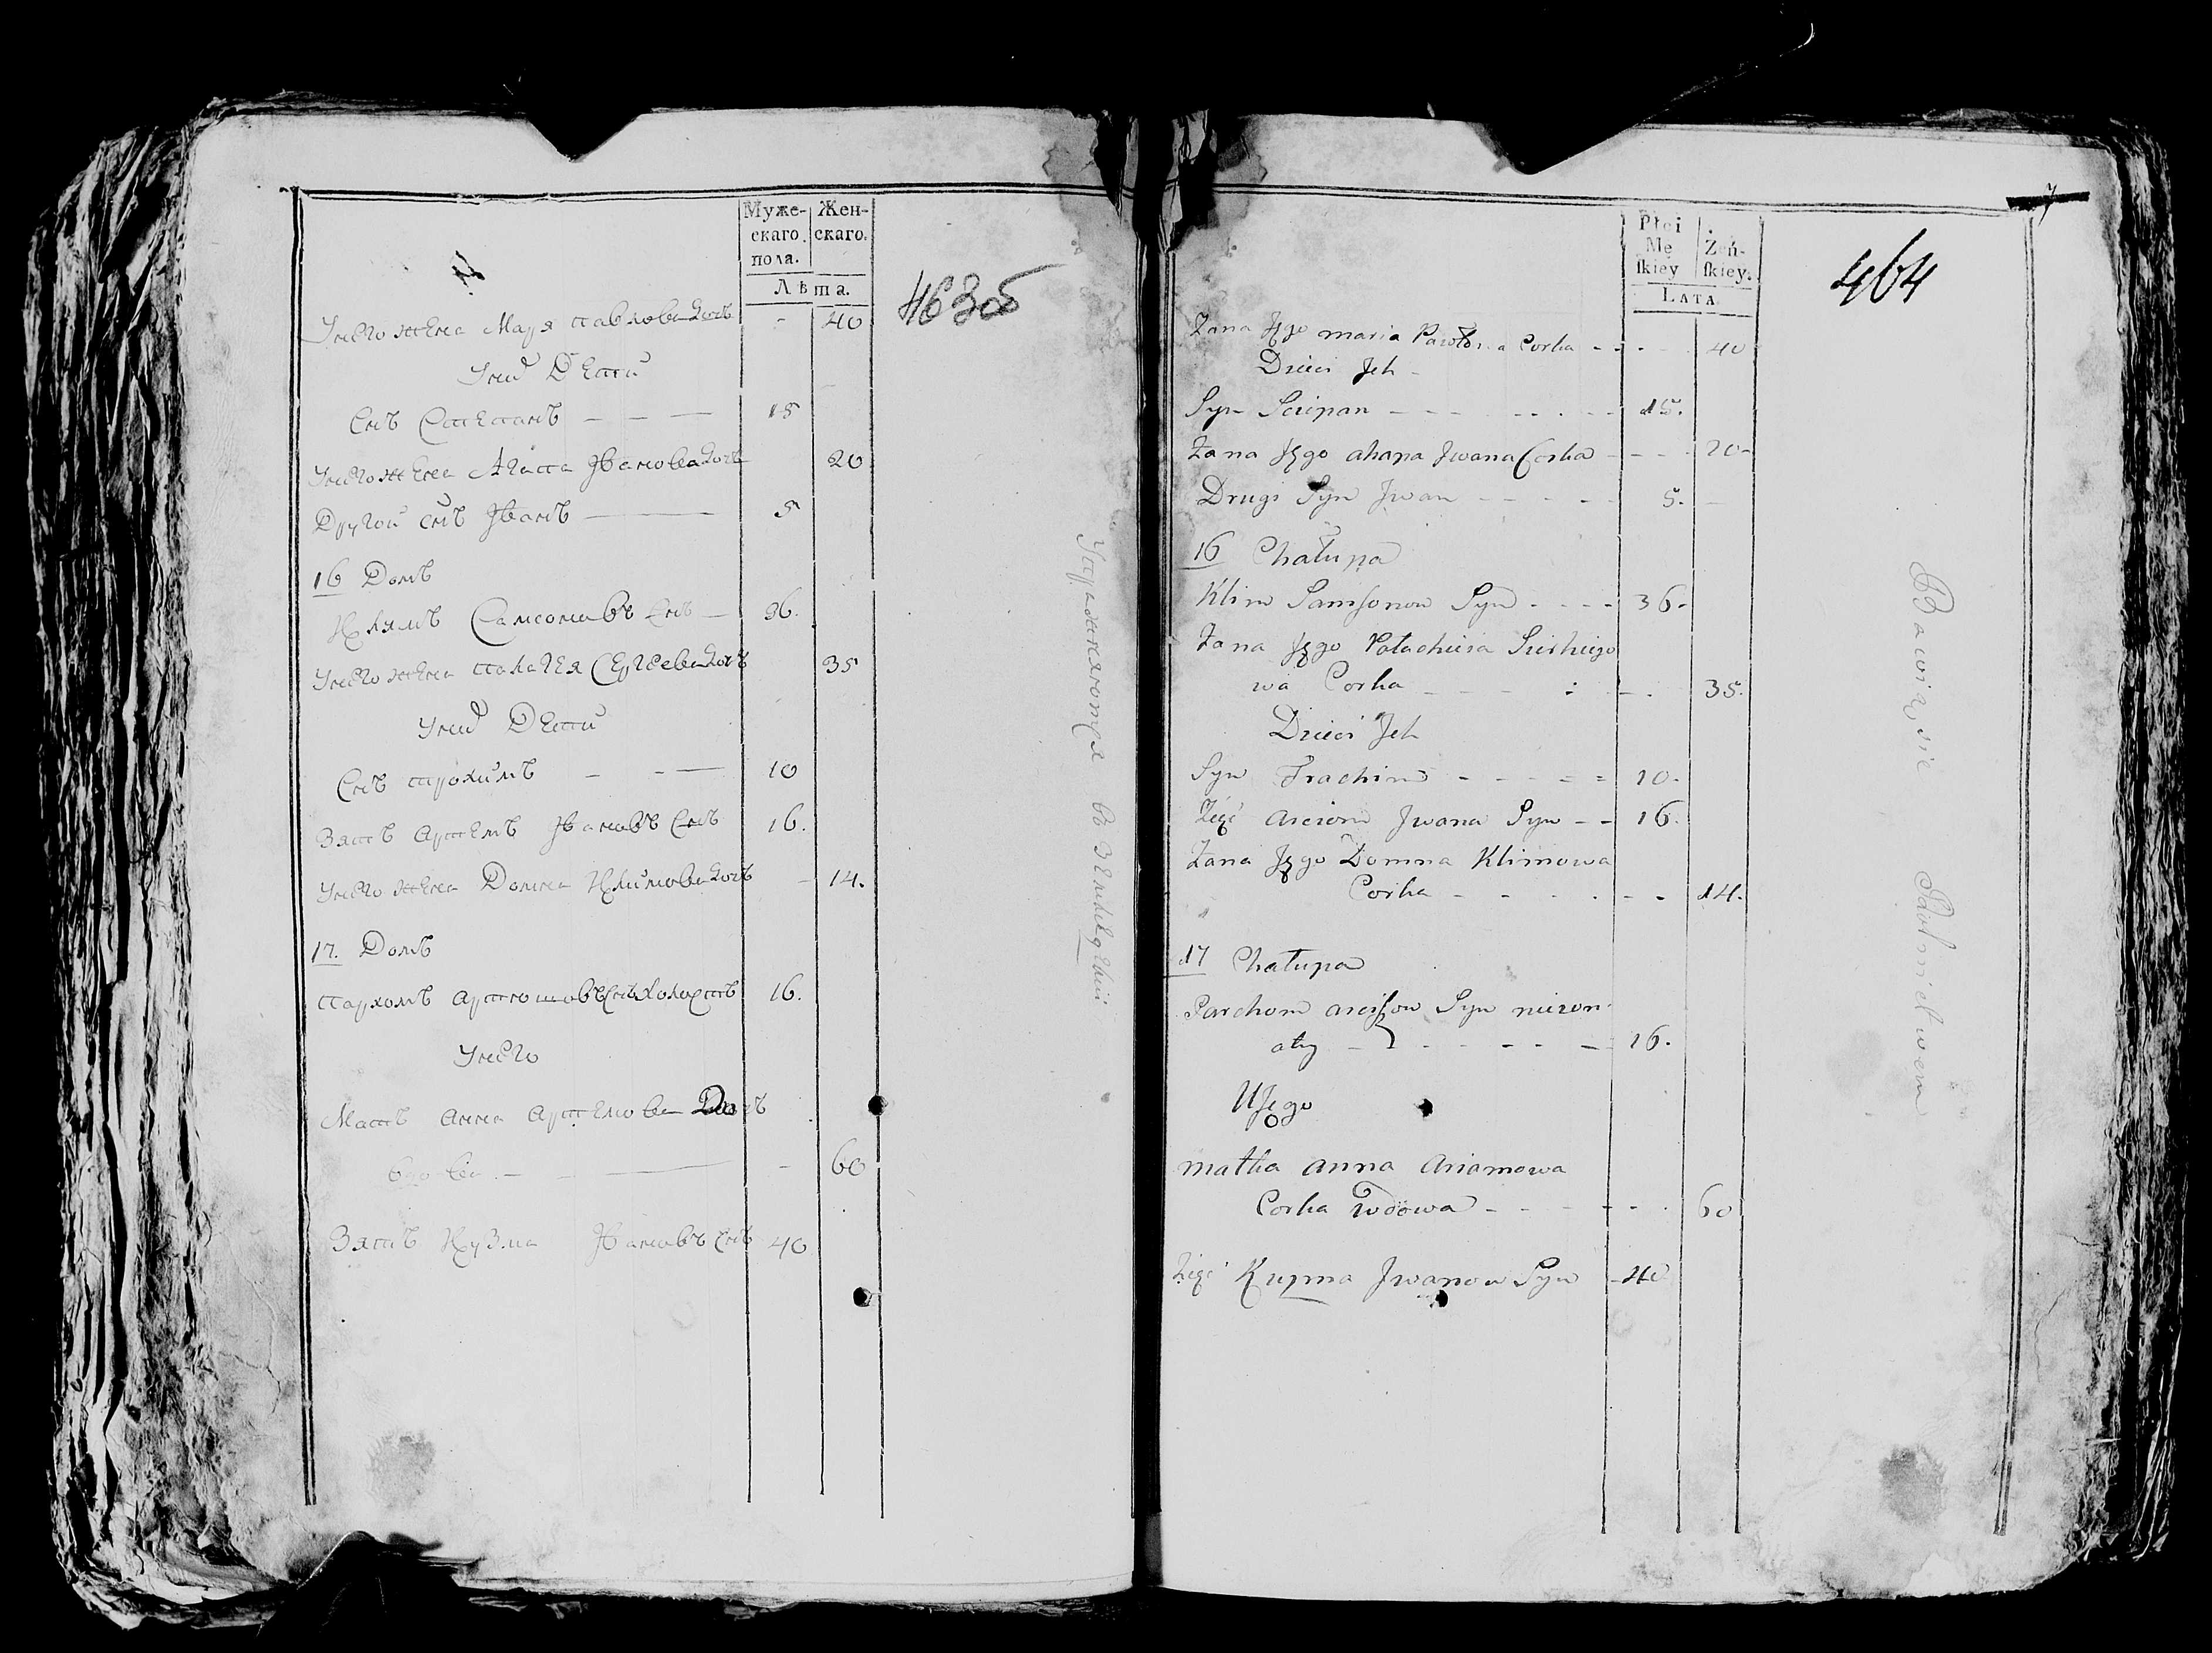 Муже-
скаго
пола.
Жен-
скаго.
Лѣта.
463об
У него жена Маря Павлова дочь - 40
У них Дети
Снъ Степанъ - - - 15
У него жена Агапа Иванова дочь 20
Другой снъ Иванъ - 5
16 Домъ
Климъ Самсоновъ снъ - 36.
У него жена Палагея Сергеева дочь 35
У них Дети
Снъ Трохимъ - - - 10
Зять Артемъ Ивановъ снъ 16.
У него жена Домна Климова дочь - 14.
17. Домъ
Пархомъ Артюшовъ снъ холостъ 16.
У него
Мать Анна Артемова Дочь
вдова - - 60
Зять Кузма Ивановъ снъ 40
Упражняются въ Земледелии
7
Płci
Mę
ſkiey
Żeń-
ſkiey.
LATA
464
Zana Jęgo maria Pawłowa Corka - - - 40
Dzieci Jch -
Syn Sciepan - - - - - - - 15.
Zana Jęgo ahapa Jwana Corka - - - - 20-
Drugi Syn Jwan - - - - - 5.
16 Chałupa
Klim Samſonow Syn - - - - 36-
Zana Jęgo Patachieia Sierhiejo
wa Corka - - - - - 35.
Dzieci Jch
Syn Trachim - - - - - 10-
Zięć arciom Jwana Syn - - 16.
Zana Jęgo Domna Klimowa
Corka - - - - - - 14.
17 Chałupa
Parchom arciſzow Syn nieżon
aty - - - - - - 16.
U Jęgo
matka anna Arciamowa
Corka wdowa - - - - - - 60
Zięć Kuzma Jwanow Syn - 40
Bawią się